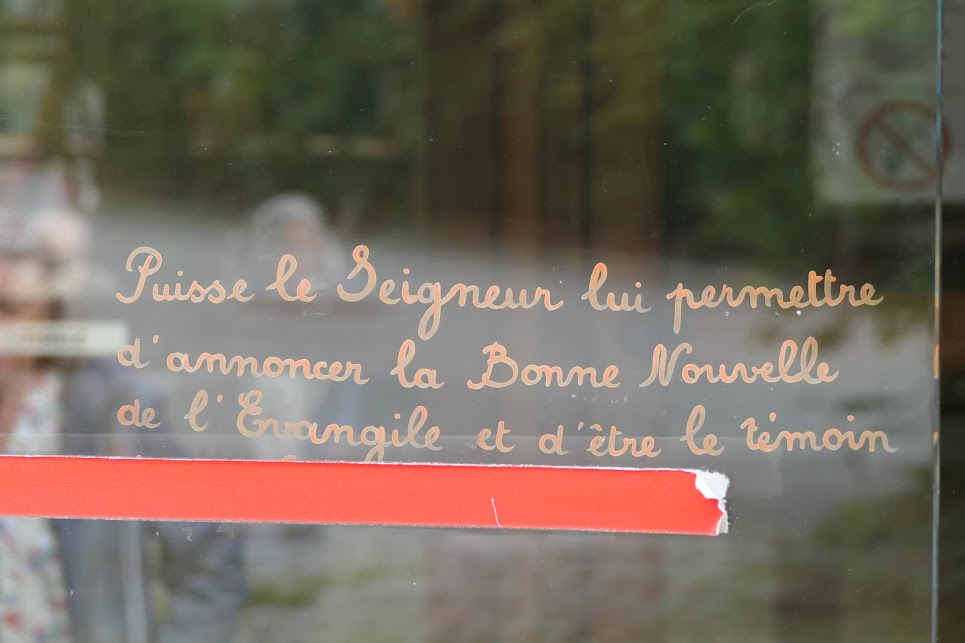 Puisse le Seigneur lui permettre
d'annoncer la Bonne Nouvelle
de l'Evangile et d'être le témoin